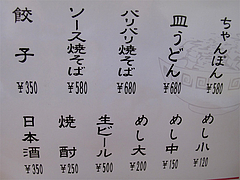 ちゃんぽん
¥580
皿うどん
¥680
バリバリ焼そば
¥680
ソース焼そば
¥580
餃子
¥350
めし小
¥120
めし中
¥150
めし大
¥200
生ビール
¥500
焼酎
¥250
日本酒
¥350